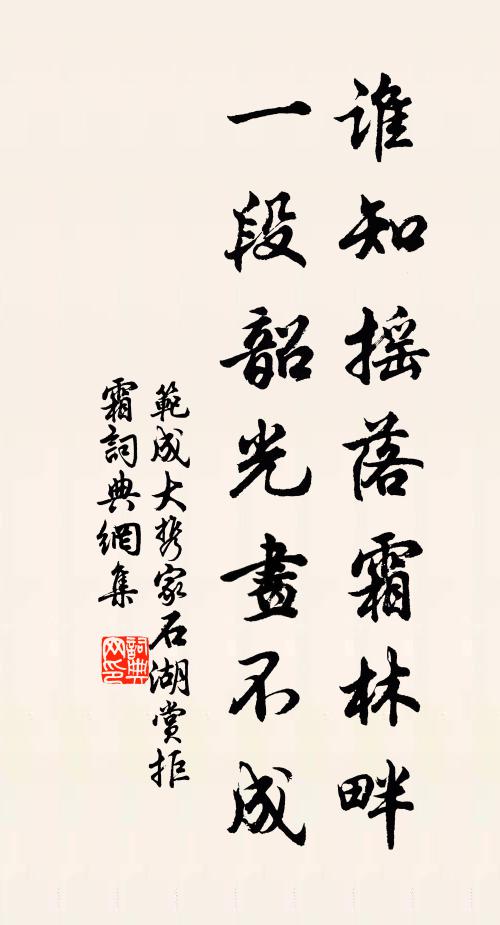 谁知摇落霜林畔
一段韶光畫不成
範成大携家石湖赏拒
霜詞典網集
詞典
网印